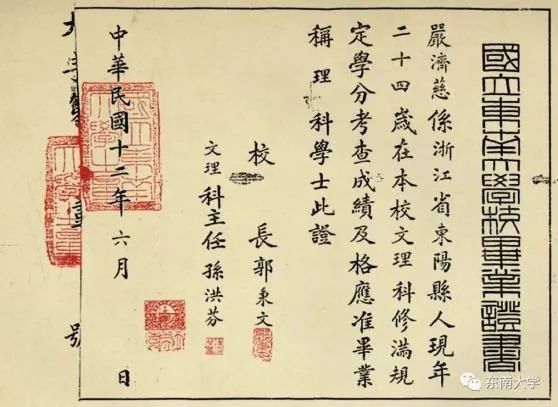 國立東南大學校畢業證書
嚴濟慈係浙江省東陽縣人現年
二十四歲在本校文理科修滿規
定學分考查成績及格應准畢業
稱理科學士此證
校長郭秉文
文理科主任孫洪芬
中華民國十二年六月 日
东南大学